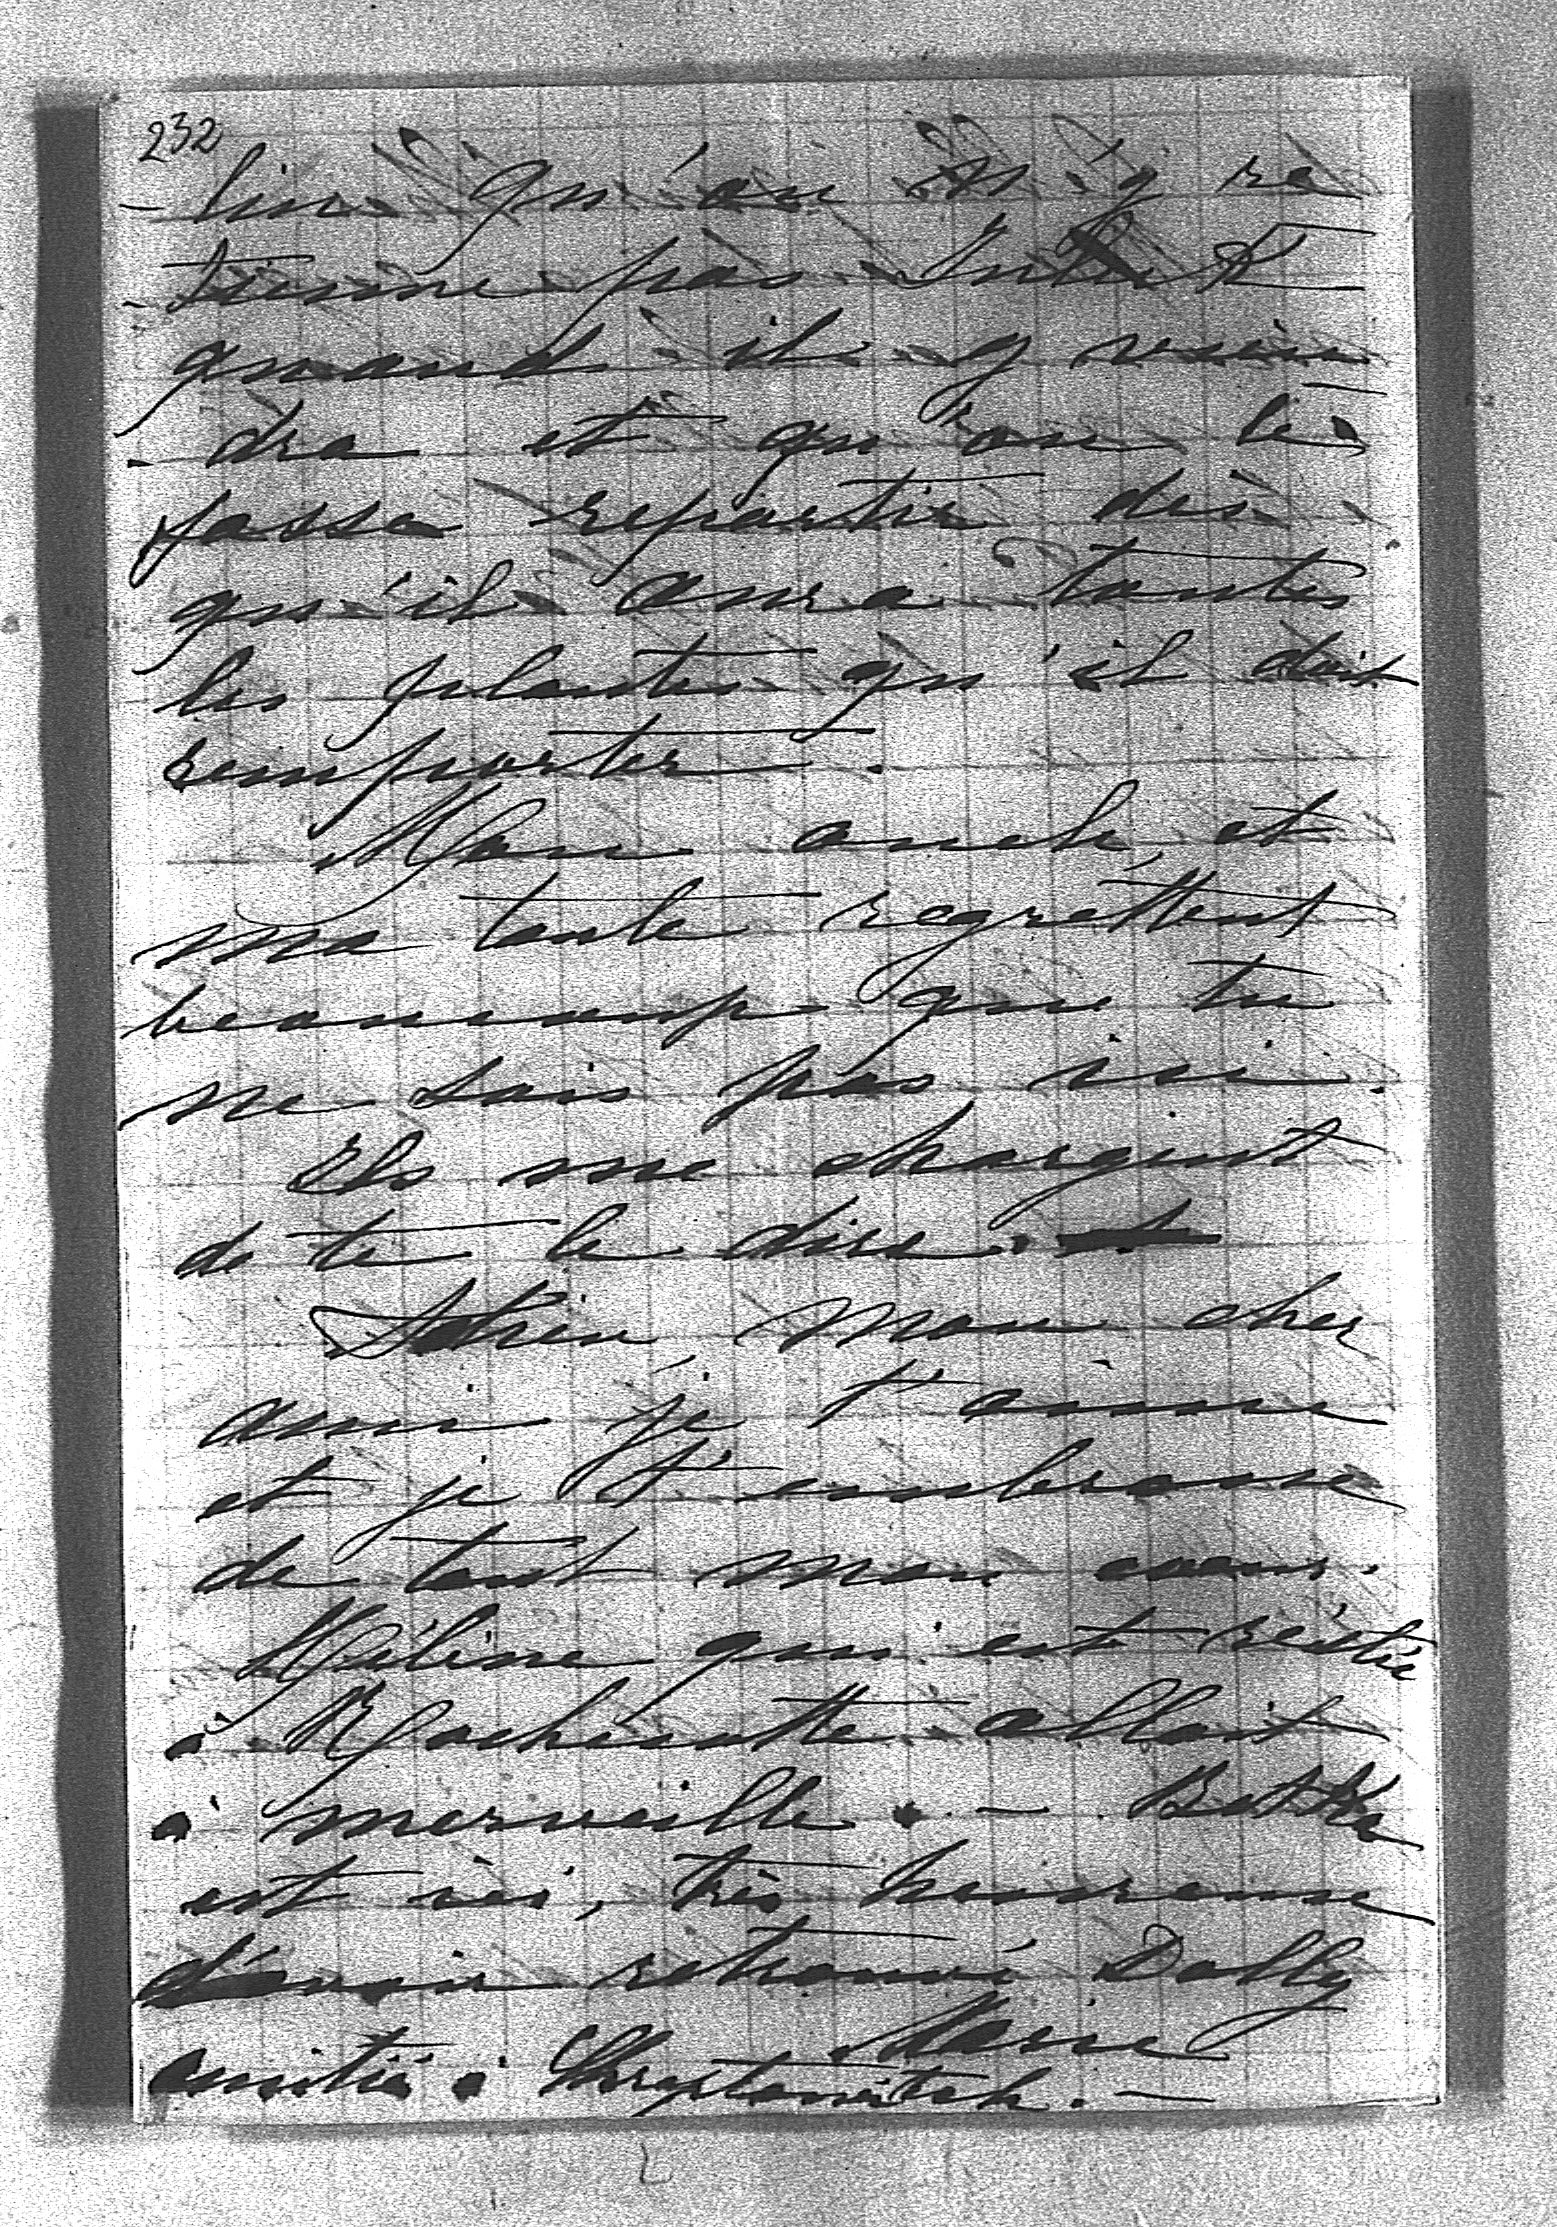 232
- lin. qu'on n'y re
- tienne pas
quand il y vien
- dra et qu'on le
fasse repartir dès
qu'il aura toutes
les plantes qu'il doit
remporter.
Mon oncle et
ma tante regrettent
beaucoup que tu
ne sois pas ici.
Ils me chargent
de te le dire.
Adieu mon cher
ami je t'aime
et je t'embrasse
de tout mon coeur.
Hélène qui est restée
à Rochecotte allait
à merveille. - Betka
est ici, très heureuse
d'avoir retrouvé Dolly
Marie
amitié à Chreptowitch. -